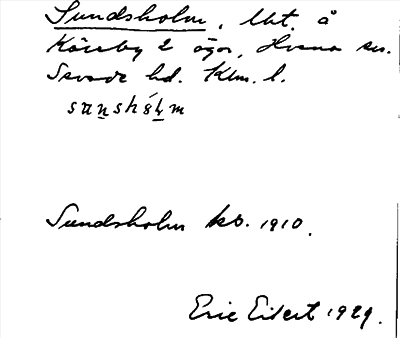 Sundsholm, lht å
Kåreby 2 ägor, Hvena sn.
Sevede hd. Klm. l.
sunshólm
Sundsholm kb. 1910.
Eric Eilert 1929.